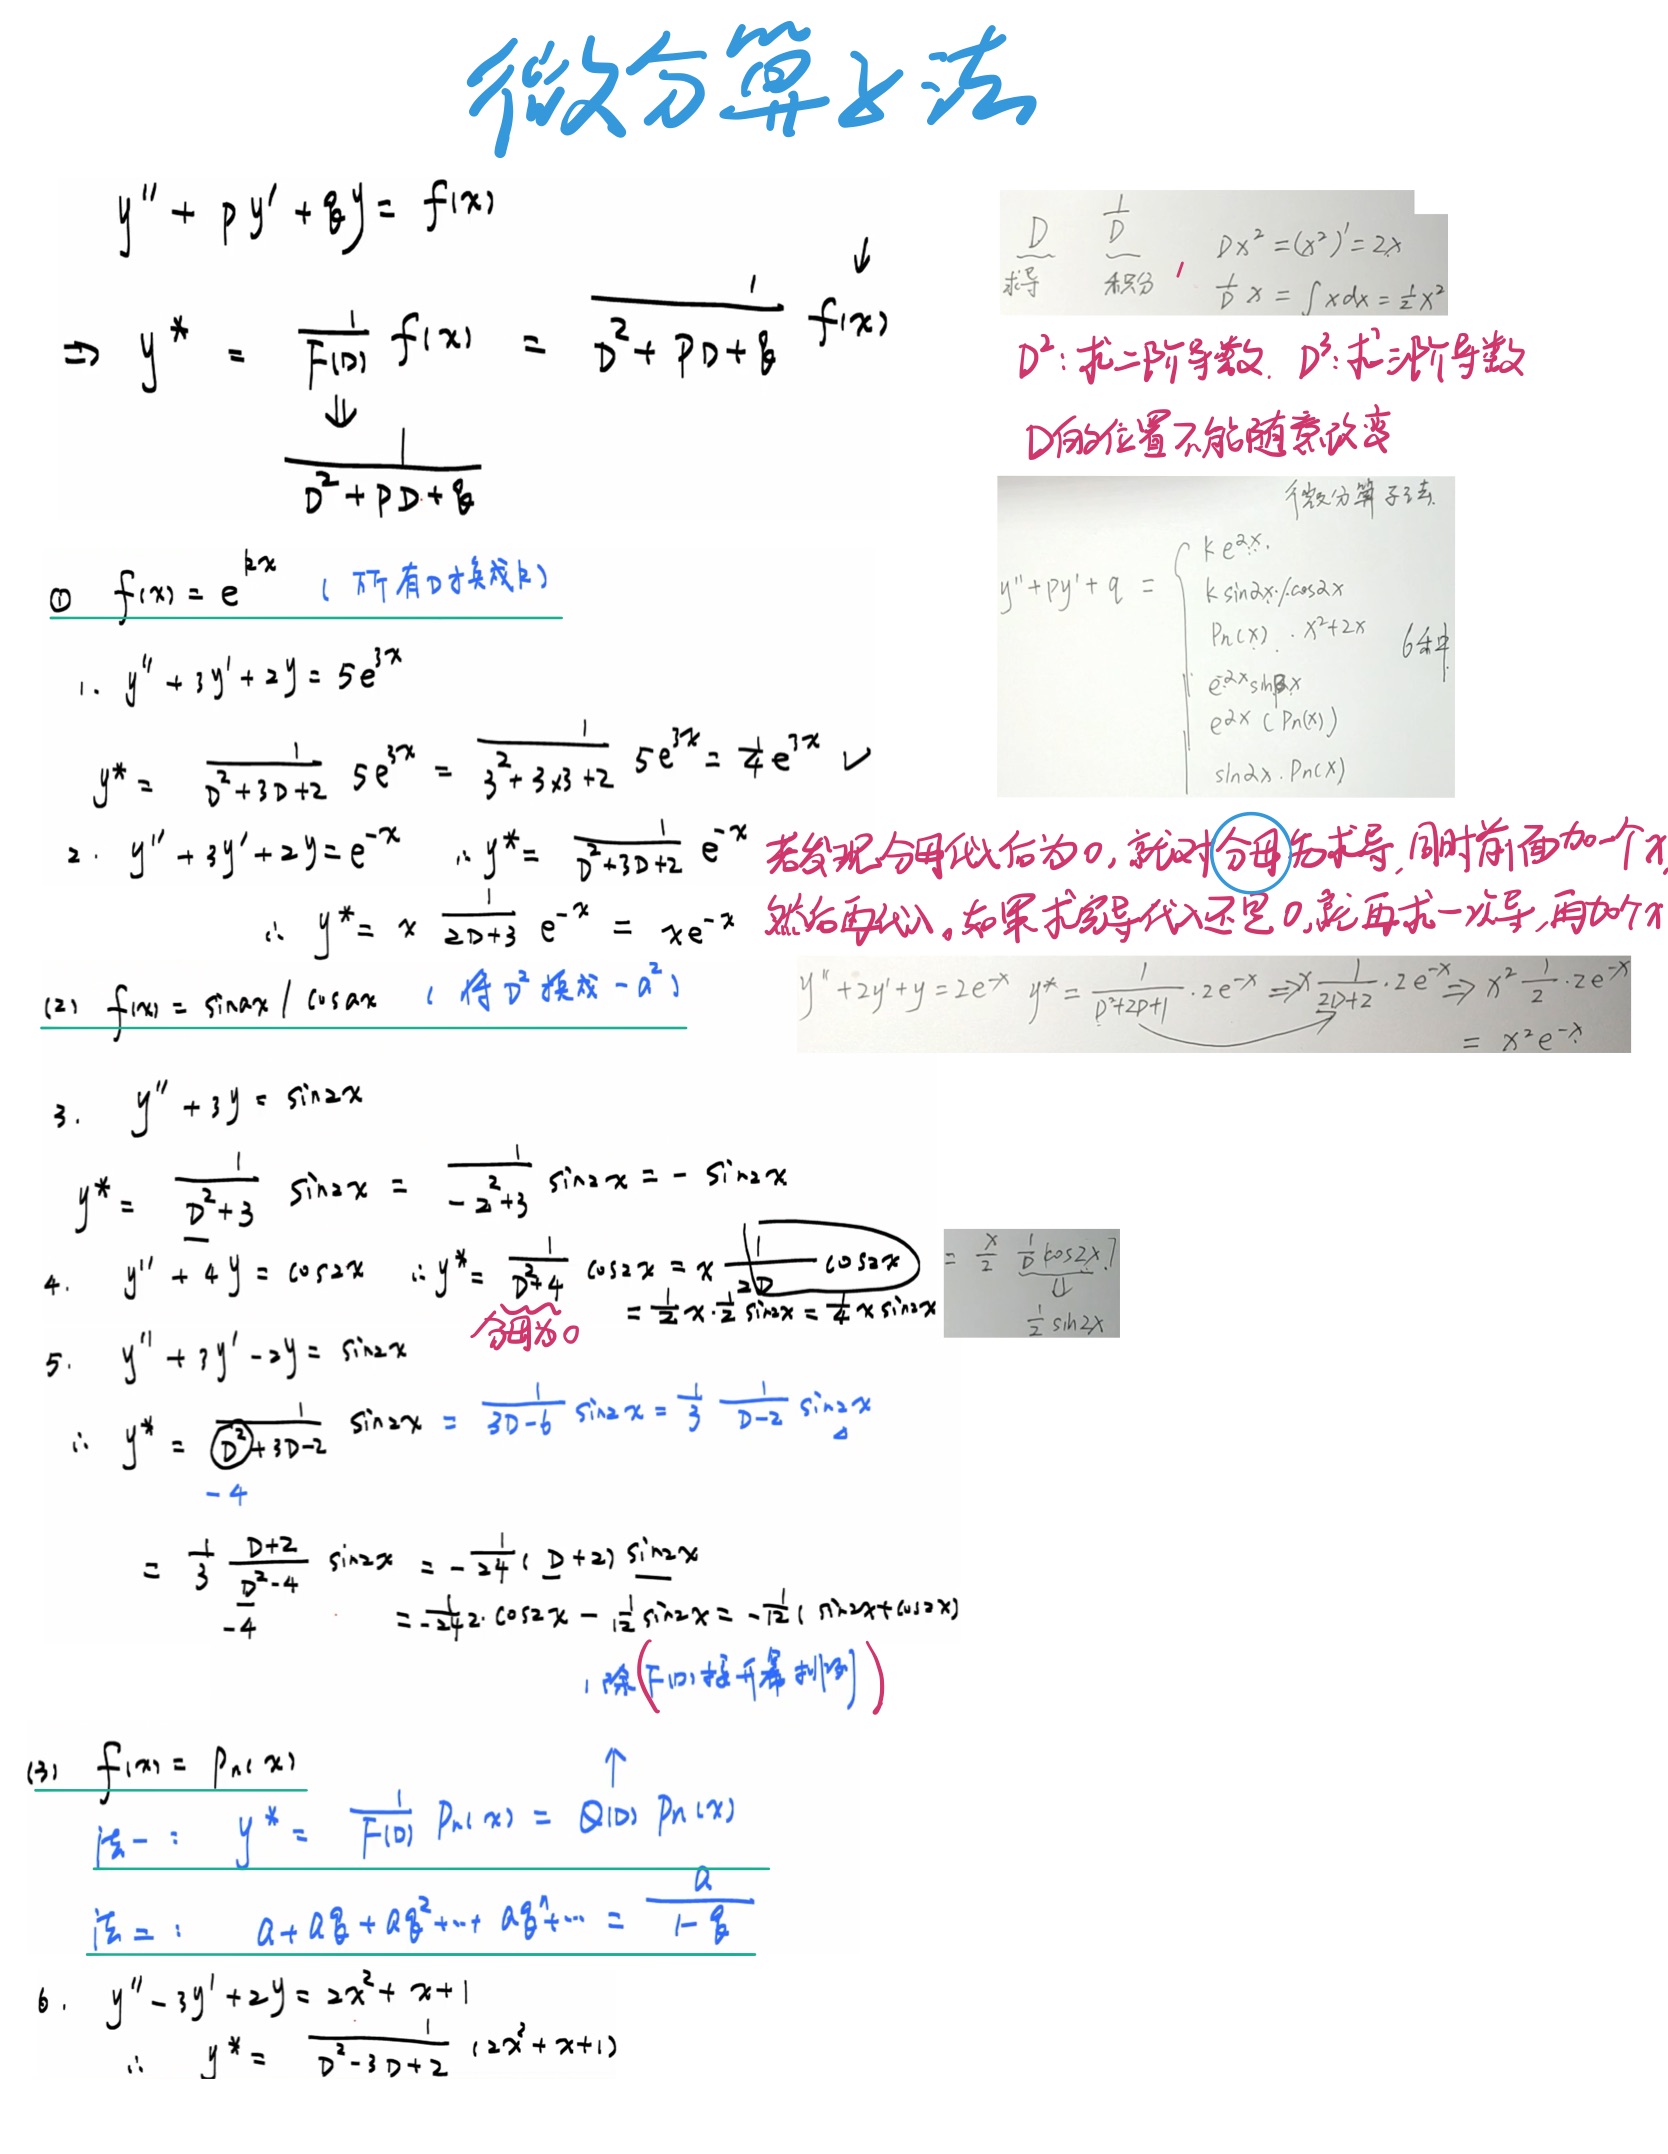 微分算子法
y″ + py′ + qy = f(x)
⇒ y* = 1/F(D) f(x) = 1/(D²+PD+q) f(x)
⇓
1/(D²+PD+q)
D 求导 1/D 积分, Dx² = (x²)′ = 2x
1/D x = ∫xdx = 1/2 x²
D²: 求二阶导数. D³: 求三阶导数
D的位置不能随意改变
微分算子法.
y″+py′+q = {
ke^{2x}.
k sin2x./.cos2x
Pn(x). x²+2x 6种
e^{-2x}sinβx
e^{2x}(Pn(x))
sin2x.Pn(x)
① f(x) = e^{kx} (所有D换成k)
1. y″+3y′+2y = 5e^{3x}
y* = 1/(D²+3D+2) 5e^{3x} = 1/(3²+3×3+2) 5e^{3x} = 1/4 e^{3x} ✓
2. y″+3y′+2y = e^{-x} ∴ y* = 1/(D²+3D+2) e^{-x}
∴ y* = x 1/(2D+3) e^{-x} = xe^{-x}
若发现分母代入后为0, 就对分母先求导, 同时前面加一个x,
然后再代入。如果求完导代入还是0, 就再求一次导, 再加个x
y″+2y′+y = 2e^{-x} y* = 1/(D²+2D+1)·2e^{-x} ⇒ x 1/(2D+2)·2e^{-x} ⇒ x² 1/2·2e^{-x}
= x²e^{-x}
(2) f(x) = sinax / cosax (将D²换成-a²)
3. y″+3y = sin2x
y* = 1/(D²+3) sin2x = 1/(-2²+3) sin2x = - sin2x
4. y″+4y = cos2x ∴ y* = 1/(D²+4) cos2x = x 1/2D cos2x
= x/2 1/D cos2x
⇓
1/2 sin2x
= 1/2 x·1/2 sin2x = 1/4 x sin2x
分母为0
5. y″+3y′-2y = sin2x
∴ y* = 1/(D²+3D-2) sin2x = 1/(3D-6) sin2x = 1/3 1/(D-2) sin2x
-4
= 1/3 (D+2)/(D²-4) sin2x = -1/24 (D+2) sin2x
-4
= -1/24 2·cos2x - 1/12 sin2x = -1/12 (sin2x+cos2x)
(除(F(D)按升幂排列))
↑
(3) f(x) = Pn(x)
法一: y* = 1/F(D) Pn(x) = Q(D) Pn(x)
法二: a+aq+aq²+…+aqⁿ+… = a/(1-q)
6. y″-3y′+2y = 2x²+x+1
∴ y* = 1/(D²-3D+2) (2x²+x+1)